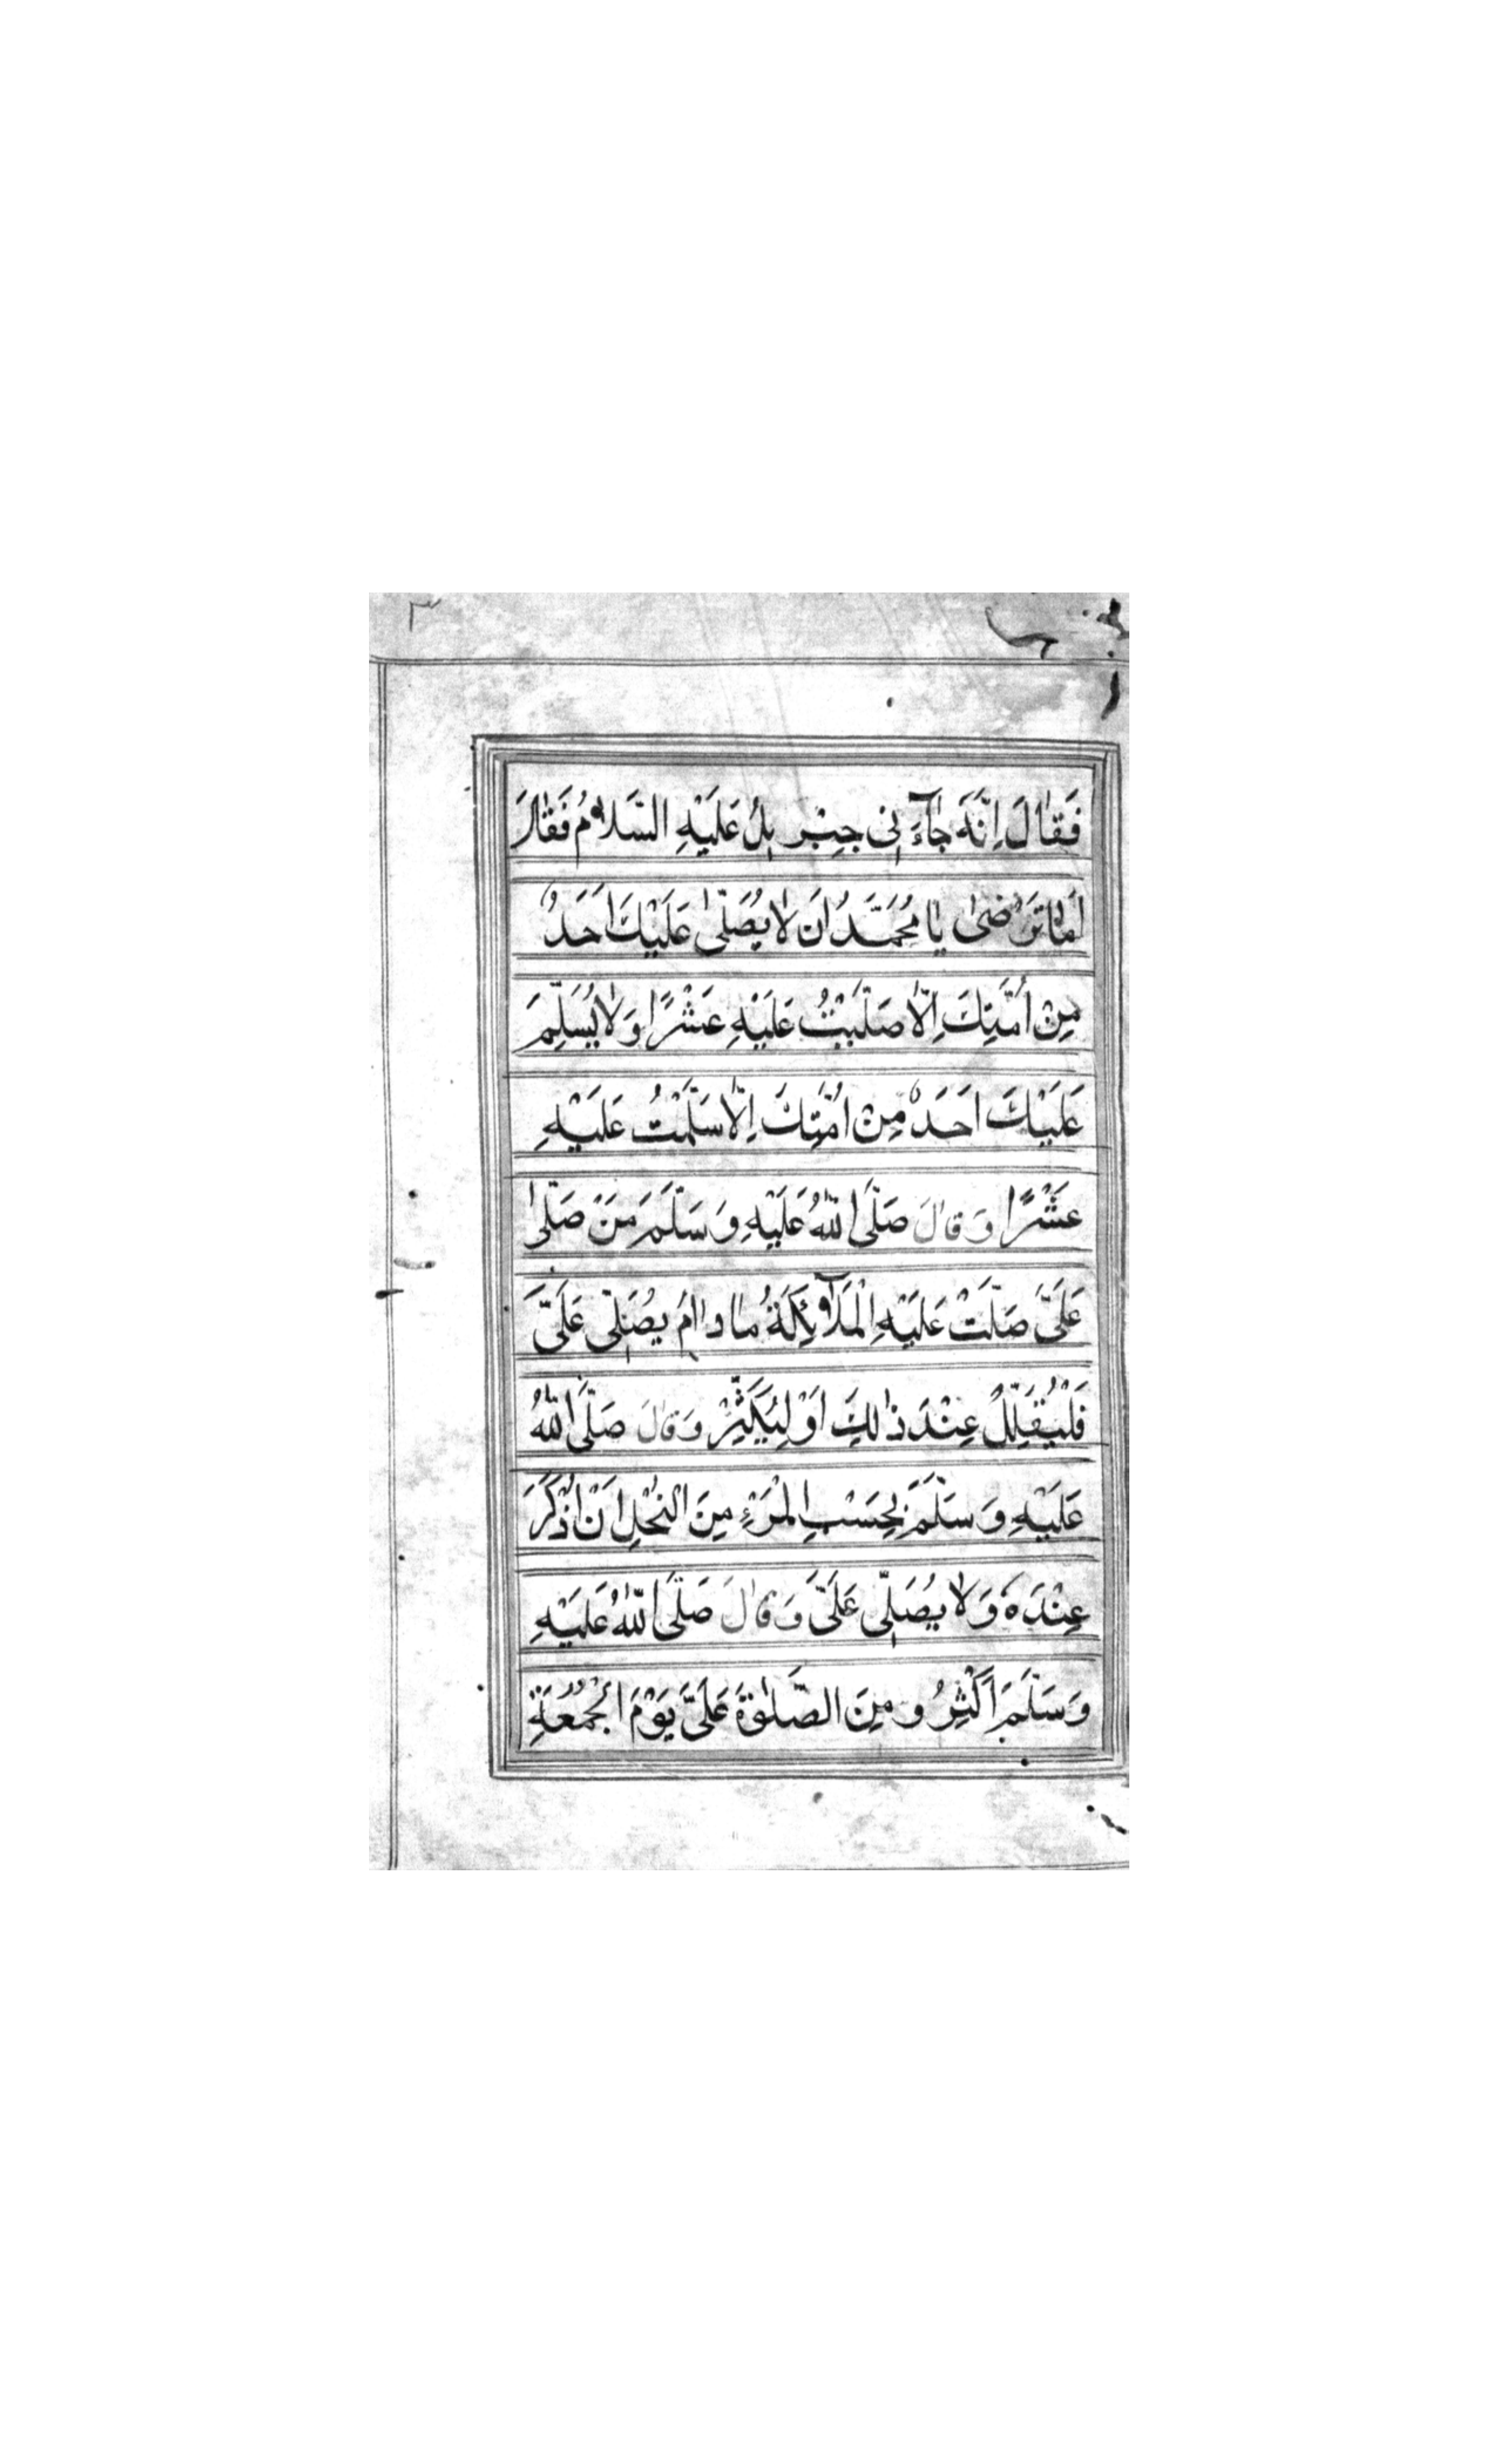 ٣
فَقَالَ اِنَّهُ جَآءَنِی جِبْرِیلُ عَلَیْهِ السَّلَامُ فَقَالَ
اَمَا تَرْضٰی یَا مُحَمَّدُ اَنْ لَا یُصَلّٰی عَلَیْكَ اَحَدٌ
مِنْ اُمَّتِكَ اِلَّا صَلَّیْتُ عَلَیْهِ عَشْرًا وَلَا یُسَلِّمَ
عَلَیْكَ اَحَدٌ مِنْ اُمَّتِكَ اِلَّا سَلَّمْتُ عَلَیْهِ
عَشْرًا وَقَالَ صَلَّی اللّٰهُ عَلَیْهِ وَسَلَّمَ مَنْ صَلّٰی
عَلَیَّ صَلَّتْ عَلَیْهِ الْمَلَآئِكَةُ مَا دَامَ یُصَلِّی عَلَیَّ
فَلْیُقَلِّلْ عِنْدَ ذٰلِكَ اَوْ لِیُكَثِّرْ وَقَالَ صَلَّی اللّٰهُ
عَلَیْهِ وَسَلَّمَ بِحَسْبِ الْمَرْءِ مِنَ الْبُخْلِ اَنْ اُذْكَرَ
عِنْدَهُ وَلَا یُصَلِّی عَلَیَّ وَقَالَ صَلَّی اللّٰهُ عَلَیْهِ
وَسَلَّمَ اَكْثِرُو مِنَ الصَّلٰوةِ عَلَیَّ یَوْمَ الْجُمُعَةِ